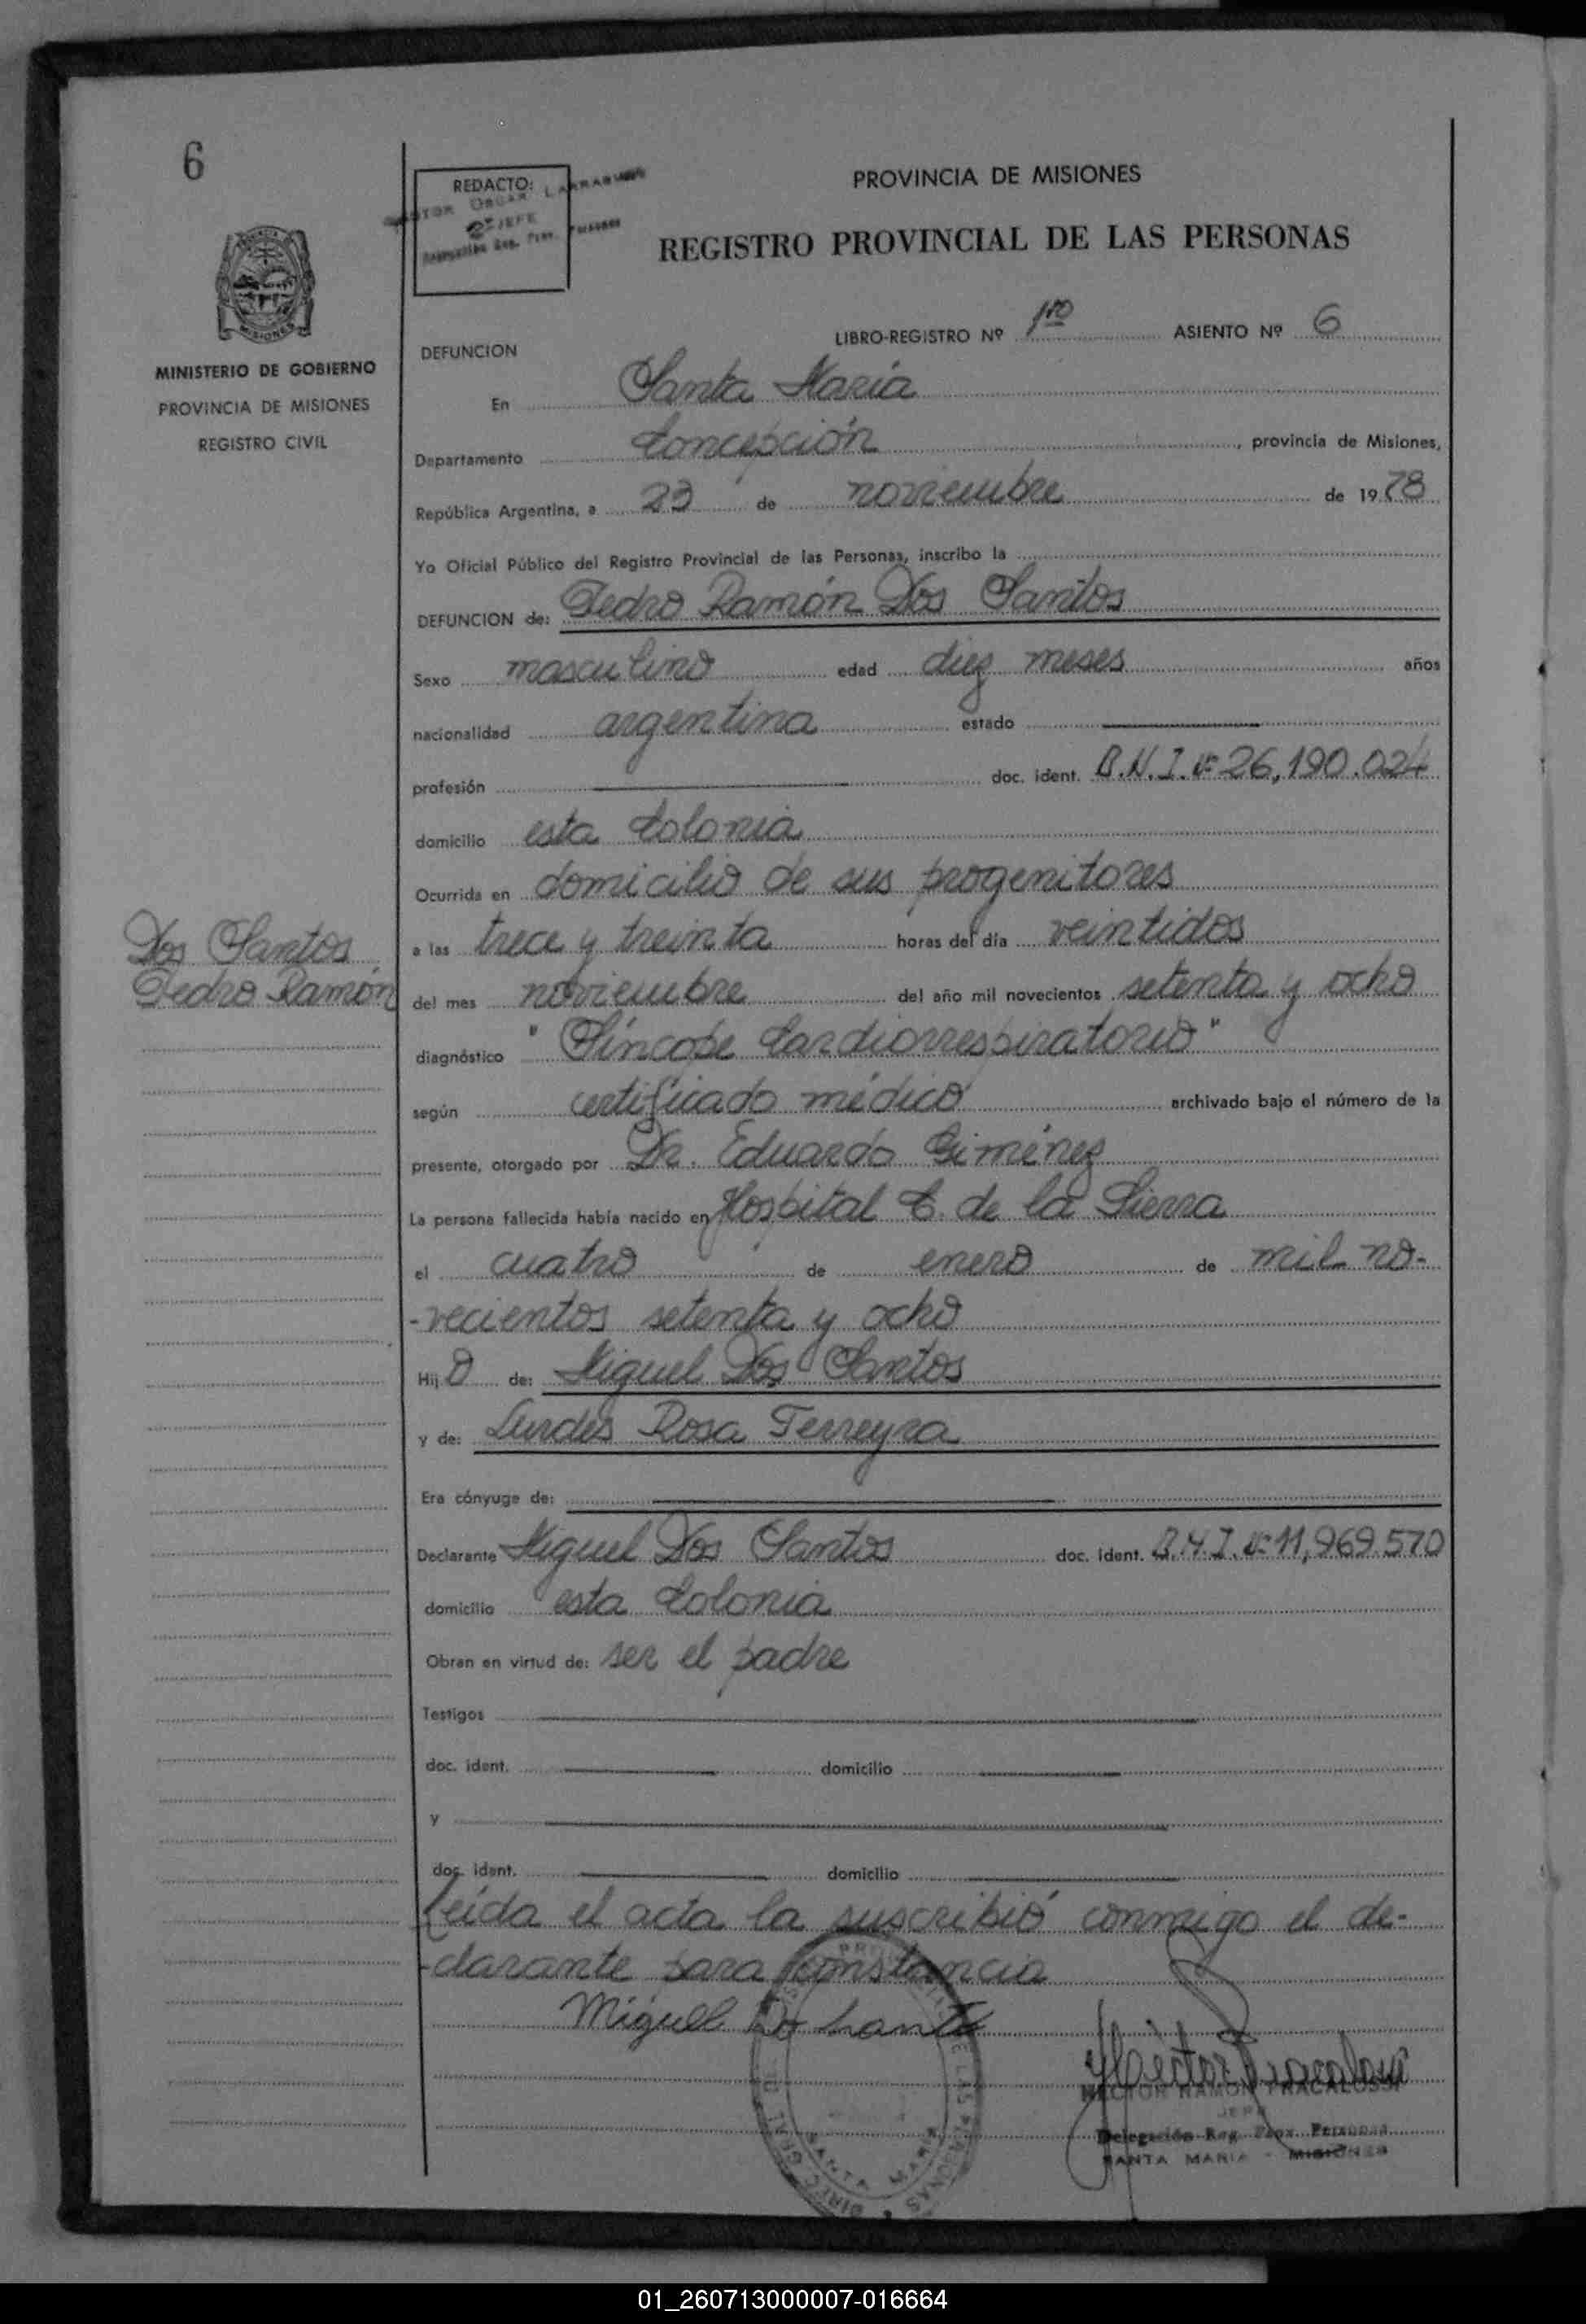 6
REDACTO:
2º JEFE
PROVINCIA DE MISIONES
REGISTRO PROVINCIAL DE LAS PERSONAS
LIBRO-REGISTRO Nº 1ro ASIENTO Nº 6
MINISTERIO DE GOBIERNO
PROVINCIA DE MISIONES
REGISTRO CIVIL
DEFUNCION
En Santa María
Departamento Concepción, provincia de Misiones,
República Argentina, a 23 de noviembre de 1978
Yo Oficial Público del Registro Provincial de las Personas, inscribo la
DEFUNCION de: Pedro Ramón Dos Santos
Sexo masculino edad diez meses años
nacionalidad argentina estado
profesión doc. ident. D.N.I. Nº 26,190.024
domicilio esta Colonia
Ocurrida en domicilio de sus progenitores
Dos Santos
Pedro Ramón
a las trece y treinta horas del día veintidos
del mes noviembre del año mil novecientos setenta y ocho
diagnóstico "Síncope Cardiorrespiratorio"
según certificado médico archivado bajo el número de la
presente, otorgado por Dr. Eduardo Giménez
La persona fallecida había nacido en Hospital C. de la Sierra
el cuatro de enero de mil no-
-vecientos setenta y ocho
Hijo de: Miguel Dos Santos
y de: Lurdes Rosa Ferreyra
Era cónyuge de:
Declarante Miguel Dos Santos doc. ident. D.N.I. Nº 11,969.570
domicilio esta Colonia
Obran en virtud de: ser el padre
Testigos
doc. ident. domicilio
y
doc. ident. domicilio
Leída el acta la suscribió conmigo el de-
-clarante para constancia
Miguel Do Santo
HECTOR RAMON FRACALOSSI
JEFE
Delegación Reg. Prov. Personas
SANTA MARIA - MISIONES
01_260713000007-016664